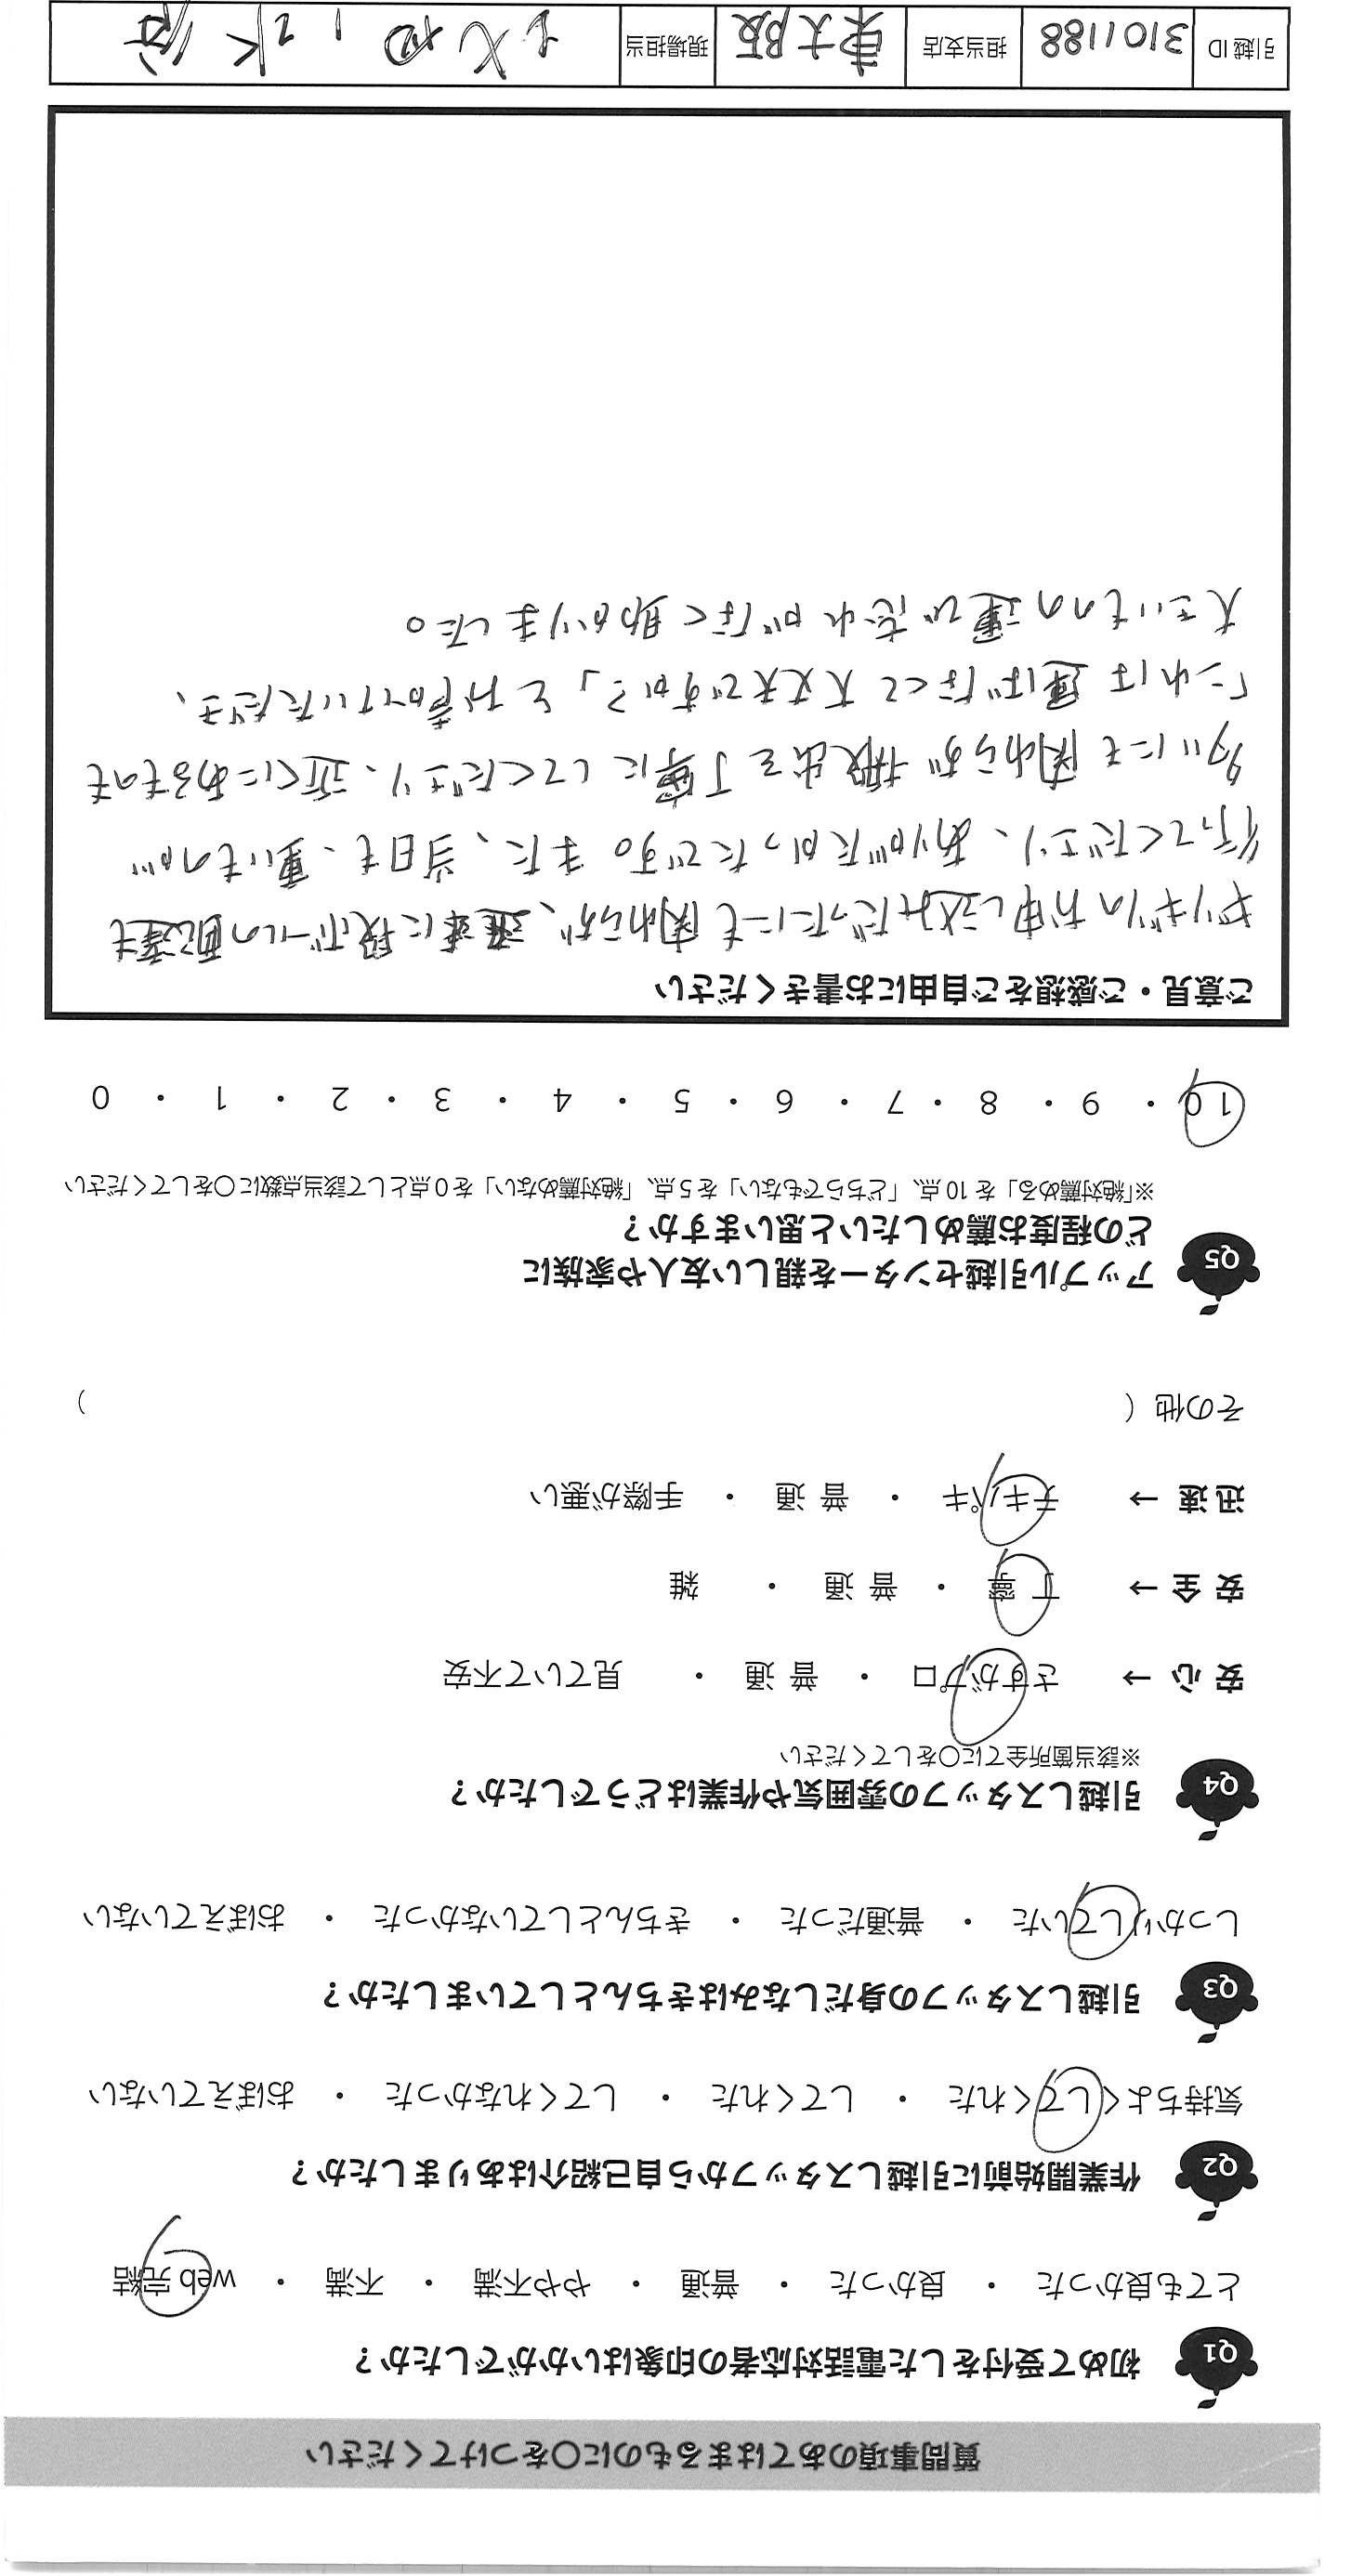 質問事項のあてはまるものに〇をつけてください
Q1 初めて受付をした電話対応者の印象はいかがでしたか？
とても良かった ・ 良かった ・ 普通 ・ やや不満 ・ 不満 ・ web 完結
Q2 作業開始前に引越しスタッフから自己紹介はありましたか？
気持ちよくしてくれた ・ してくれた ・ してくれなかった ・ おぼえていない
Q3 引越しスタッフの身だしなみはきちんとしていましたか？
しっかりしていた ・ 普通だった ・ きちんとしていなかった ・ おぼえていない
Q4 引越しスタッフの雰囲気や作業はどうでしたか？
※該当箇所全てに〇をしてください
安 心 → さすがプロ ・ 普 通 ・ 見ていて不安
安 全 → 丁 寧 ・ 普 通 ・ 雑
迅 速 → テキパキ ・ 普 通 ・ 手際が悪い
その他 （ ）
Q5 アップル引越センターを親しい友人や家族に
どの程度お薦めしたいと思いますか？
※「絶対薦める」を 10 点、「どちらでもない」を 5 点、「絶対薦めない」を 0 点として該当点数に〇をしてください
10 ・ 9 ・ 8 ・ 7 ・ 6 ・ 5 ・ 4 ・ 3 ・ 2 ・ 1 ・ 0
ご意見・ご感想をご自由にお書きください
ギリギリのお申し込みだったにも関わらず、迅速に段ボールの配達も
行ってくださり、ありがたかったです。また、当日も、重いものが
多いにも関わらず搬出を丁寧にしてくださり、近くにあるものも
「これは運ばなくて大丈夫ですか？」とお声かけいただき、
大きいものの運び忘れがなく助かりました。
引越 ID 3101188 担当支店 東大阪 現場担当